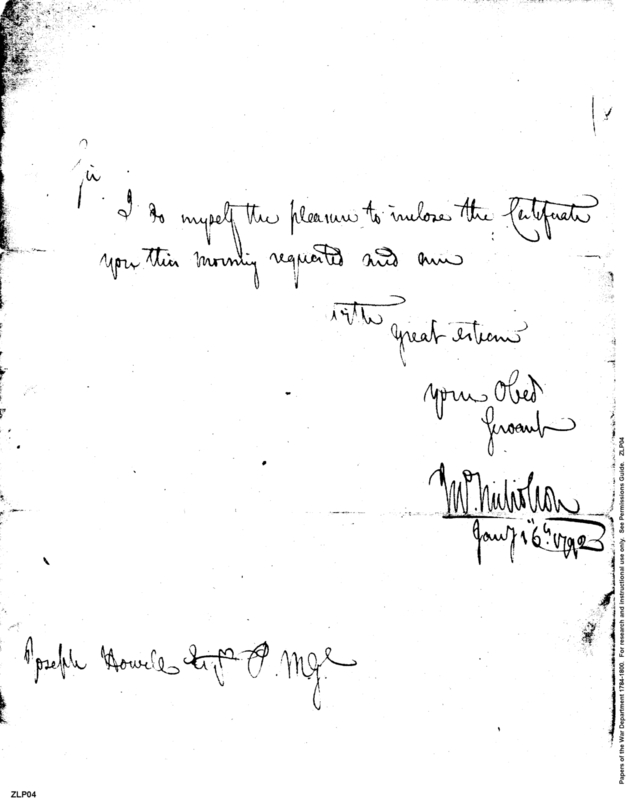 Sir
I do myself the pleasure to inclose the Certificate
you this morning requested and am
with
great esteem
your Obed
Servant
Wm. Nicholson
Jany 16th 1792
Joseph Howell Esqr P. M Gl
ZLP04
Papers of the War Department 1784-1800. For research and instructional use only. See Permissions Guide. ZLP04